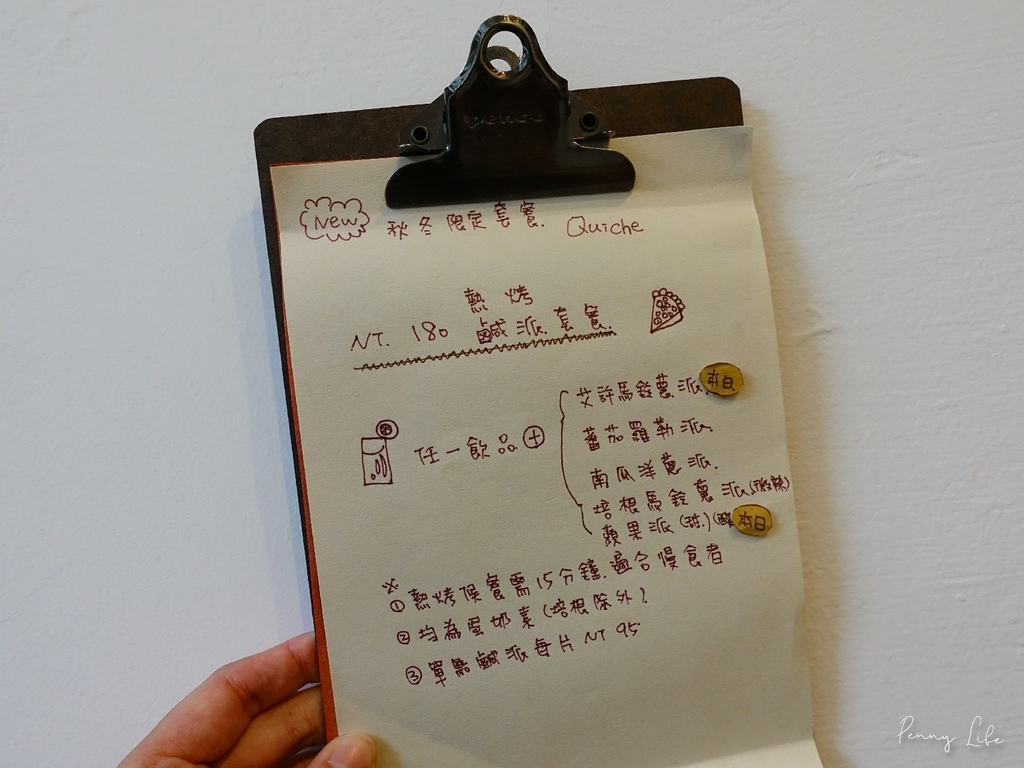 New 秋冬限定套餐. Quiche
熱烤
NT. 180 鹹派.套餐.
艾許馬鈴薯派. 本日
任一飲品 +
蕃茄羅勒派.
南瓜洋蔥派.
培根馬鈴薯派(微辣)
蘋果派(甜.) 本日
※
① 熱烤候餐需15分鐘.適合慢食者
② 均為蛋奶素(培根除外).
③ 單點鹹派每片 NT 95
Penny Life